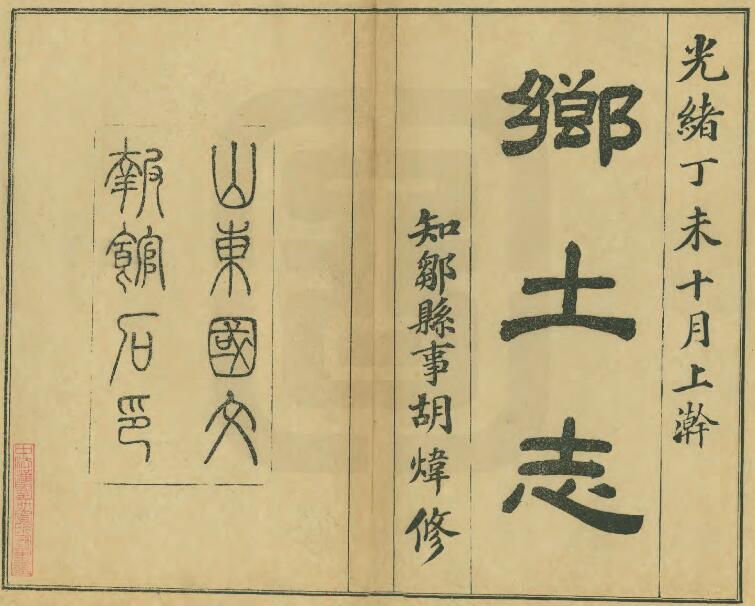 光緒丁未十月上澣
鄉土志
知鄒縣事胡煒修
山東國文
報館石印